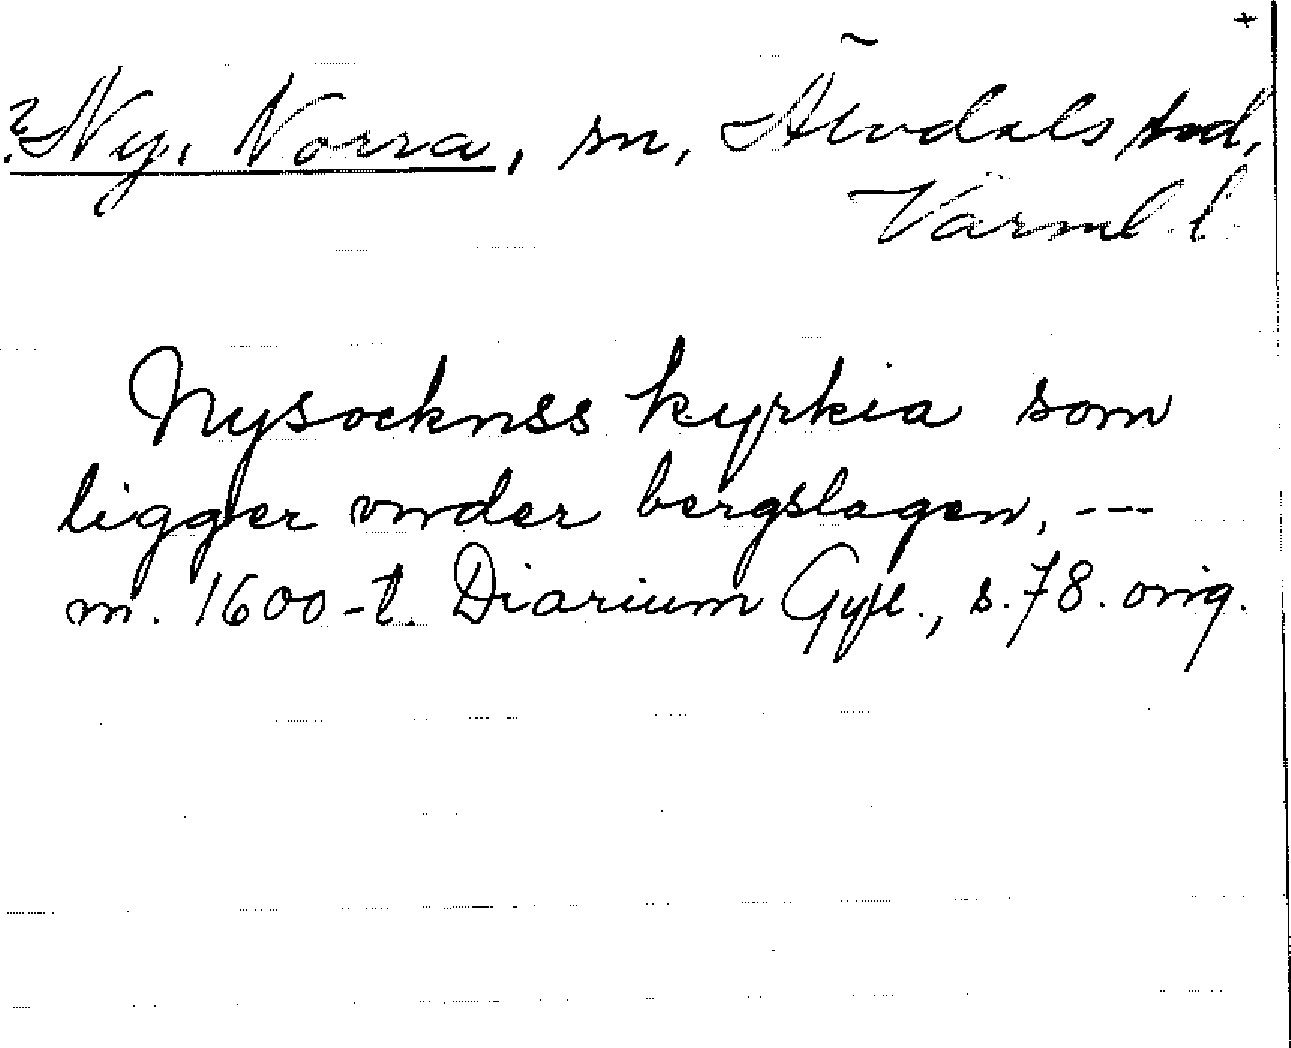 +
? Ny, Norra, sn, Älvdals hd,
Värml. l.
Nysocknss kyrkia som
ligger vnder bergslagen, ---
m. 1600-t. Diarium Gyll., s. 78. orig.